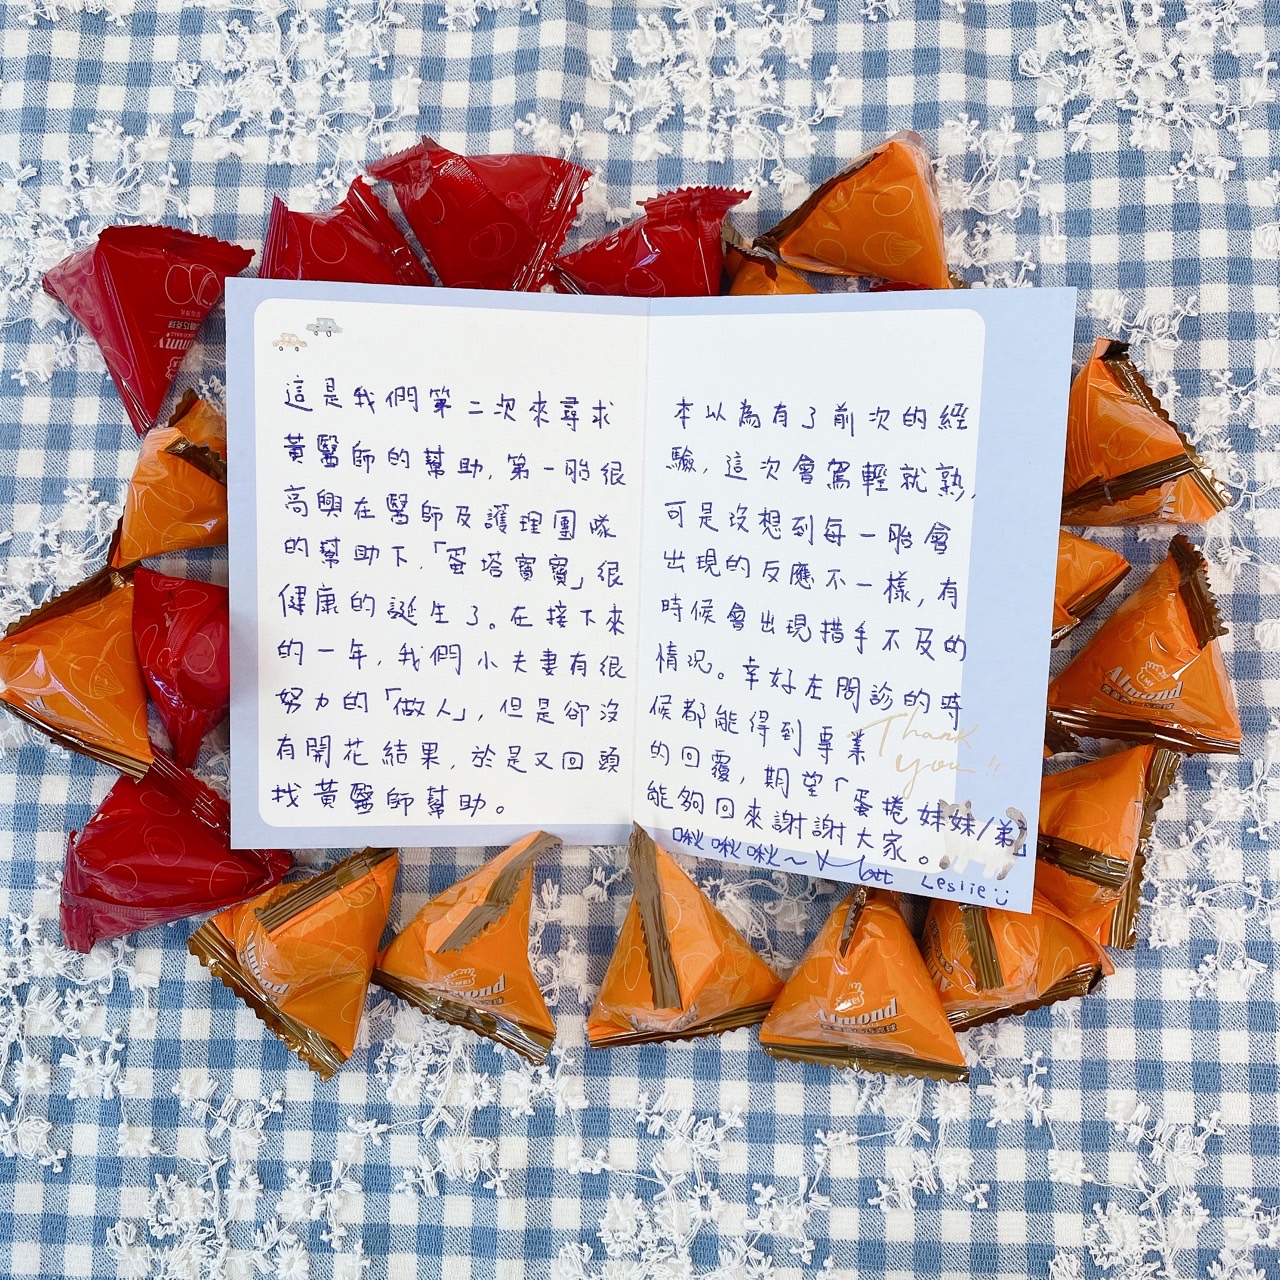 這是我們第二次來尋求
黃醫師的幫助，第一胎很
高興在醫師及護理團隊
的幫助下，「蛋塔寶寶」很
健康的誕生了。在接下來
的一年，我們小夫妻有很
努力的「做人」，但是卻沒
有開花結果，於是又回頭
找黃醫師幫助。
本以為有了前次的經
驗，這次會駕輕就熟，
可是沒想到每一胎會
出現的反應不一樣，有
時候會出現措手不及的
情況。幸好在問診的時
候都能得到專業
的回覆，期望「蛋捲妹妹/弟」
能夠回來謝謝大家。
啾啾啾～
Leslie
Thank
you!!
Almond
Almond
Almond
Almond